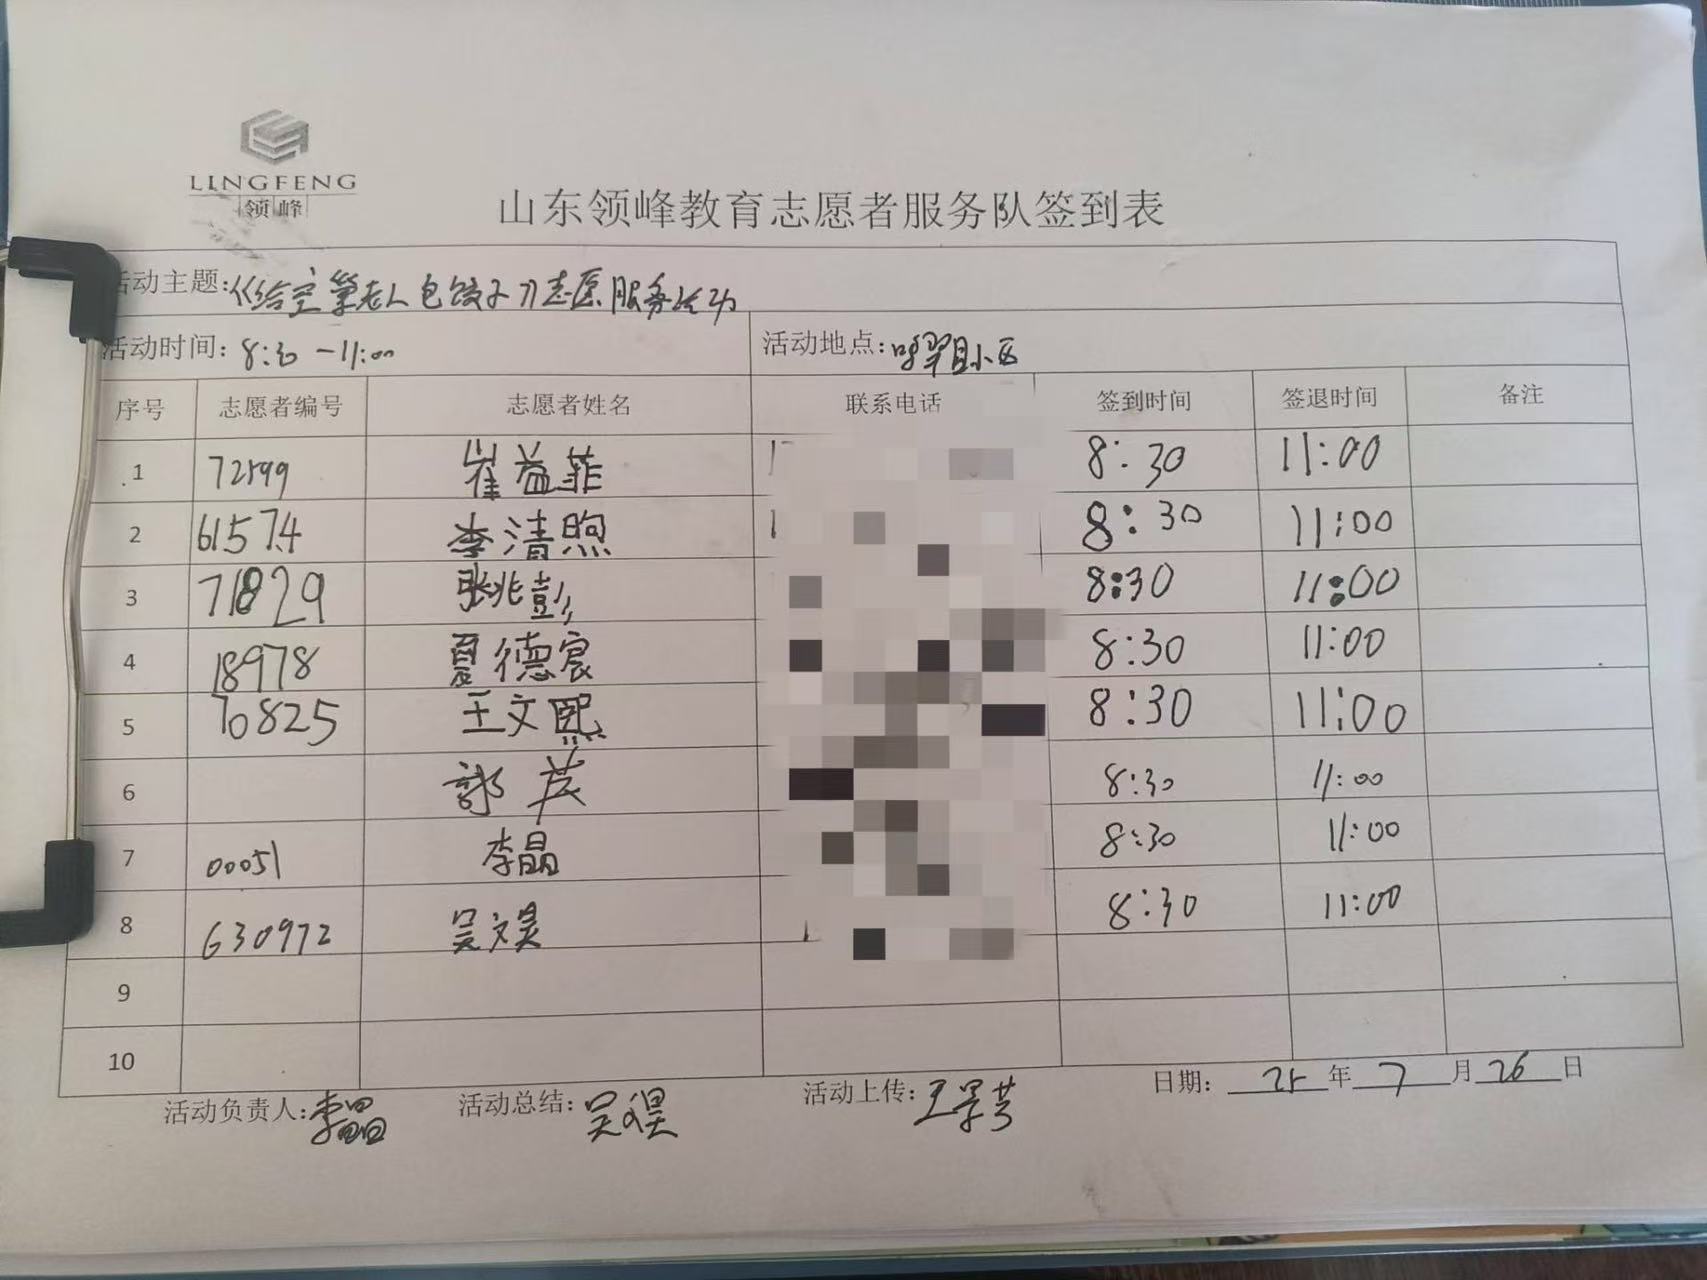 LINGFENG
领峰
山东领峰教育志愿者服务队签到表
活动主题:《给空巢老人包饺子》志愿服务活动
活动时间: 8:30-11:00 活动地点: 小区
序号 志愿者编号 志愿者姓名 联系电话 签到时间 签退时间 备注
1 72199 崔益菲 8:30 11:00
2 61574 李清煦 8:30 11:00
3 71829 张兆彭 8:30 11:00
4 18978 夏德宸 8:30 11:00
5 70825 王文熙 8:30 11:00
6 郭芹 8:30 11:00
7 00051 李晶 8:30 11:00
8 630972 吴文昊 8:30 11:00
9
10
活动负责人:李晶 活动总结:吴文昊 活动上传:王景芳 日期: 25年7月26日